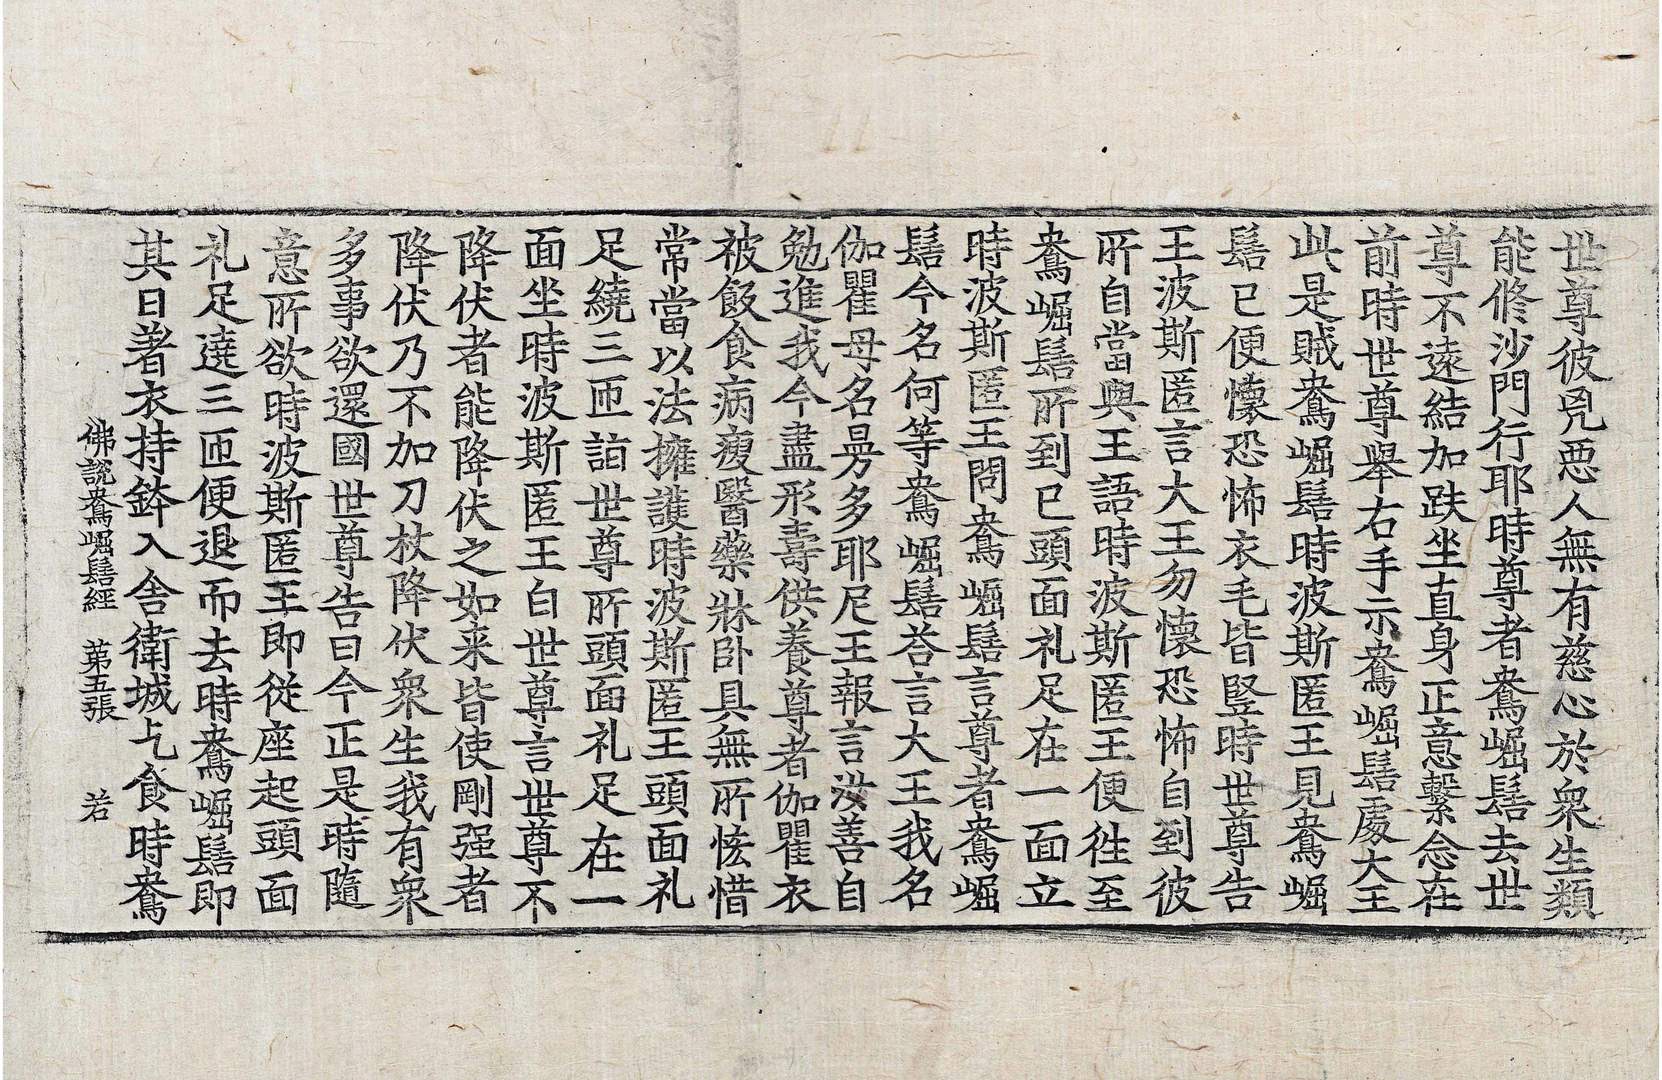 世尊彼兇惡人無有慈心於衆生類
能修沙門行耶時尊者鴦崛髻去世
尊不遠結加趺坐直身正意繫念在
前時世尊舉右手示鴦崛髻處大王
此是賊鴦崛髻時波斯匿王見鴦崛
髻已便懷恐怖衣毛皆竪時世尊告
王波斯匿言大王勿懷恐怖自到彼
所自當與王語時波斯匿王便往至
鴦崛髻所到已頭面礼足在一面立
時波斯匿王問鴦崛髻言尊者鴦崛
髻今名何等鴦崛髻荅言大王我名
伽瞿母名曼多耶尼王報言汝善自
勉進我今盡形壽供養尊者伽瞿衣
被飯食病瘦醫藥牀卧具無所悋惜
常當以法擁護時波斯匿王頭面礼
足繞三匝詣世尊所頭面礼足在一
面坐時波斯匿王白世尊言世尊不
降伏者能降伏之如来皆使剛强者
降伏乃不加刀杖降伏衆生我有衆
多事欲還國世尊告曰今正是時隨
意所欲時波斯匿王即從座起頭面
礼足遶三匝便退而去時鴦崛髻即
其日著衣持鉢入舍衛城乞食時鴦
佛說鴦崛髻經 第五張 若